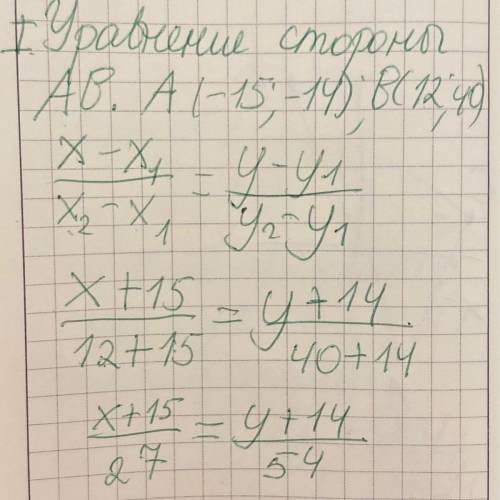 I Уравнение стороны
АВ. А (-15; -14); В(12; 40)
x - x₁ / x₂ - x₁ = y - y₁ / y₂ - y₁
x + 15 / 12 + 15 = y + 14 / 40 + 14
x + 15 / 27 = y + 14 / 54